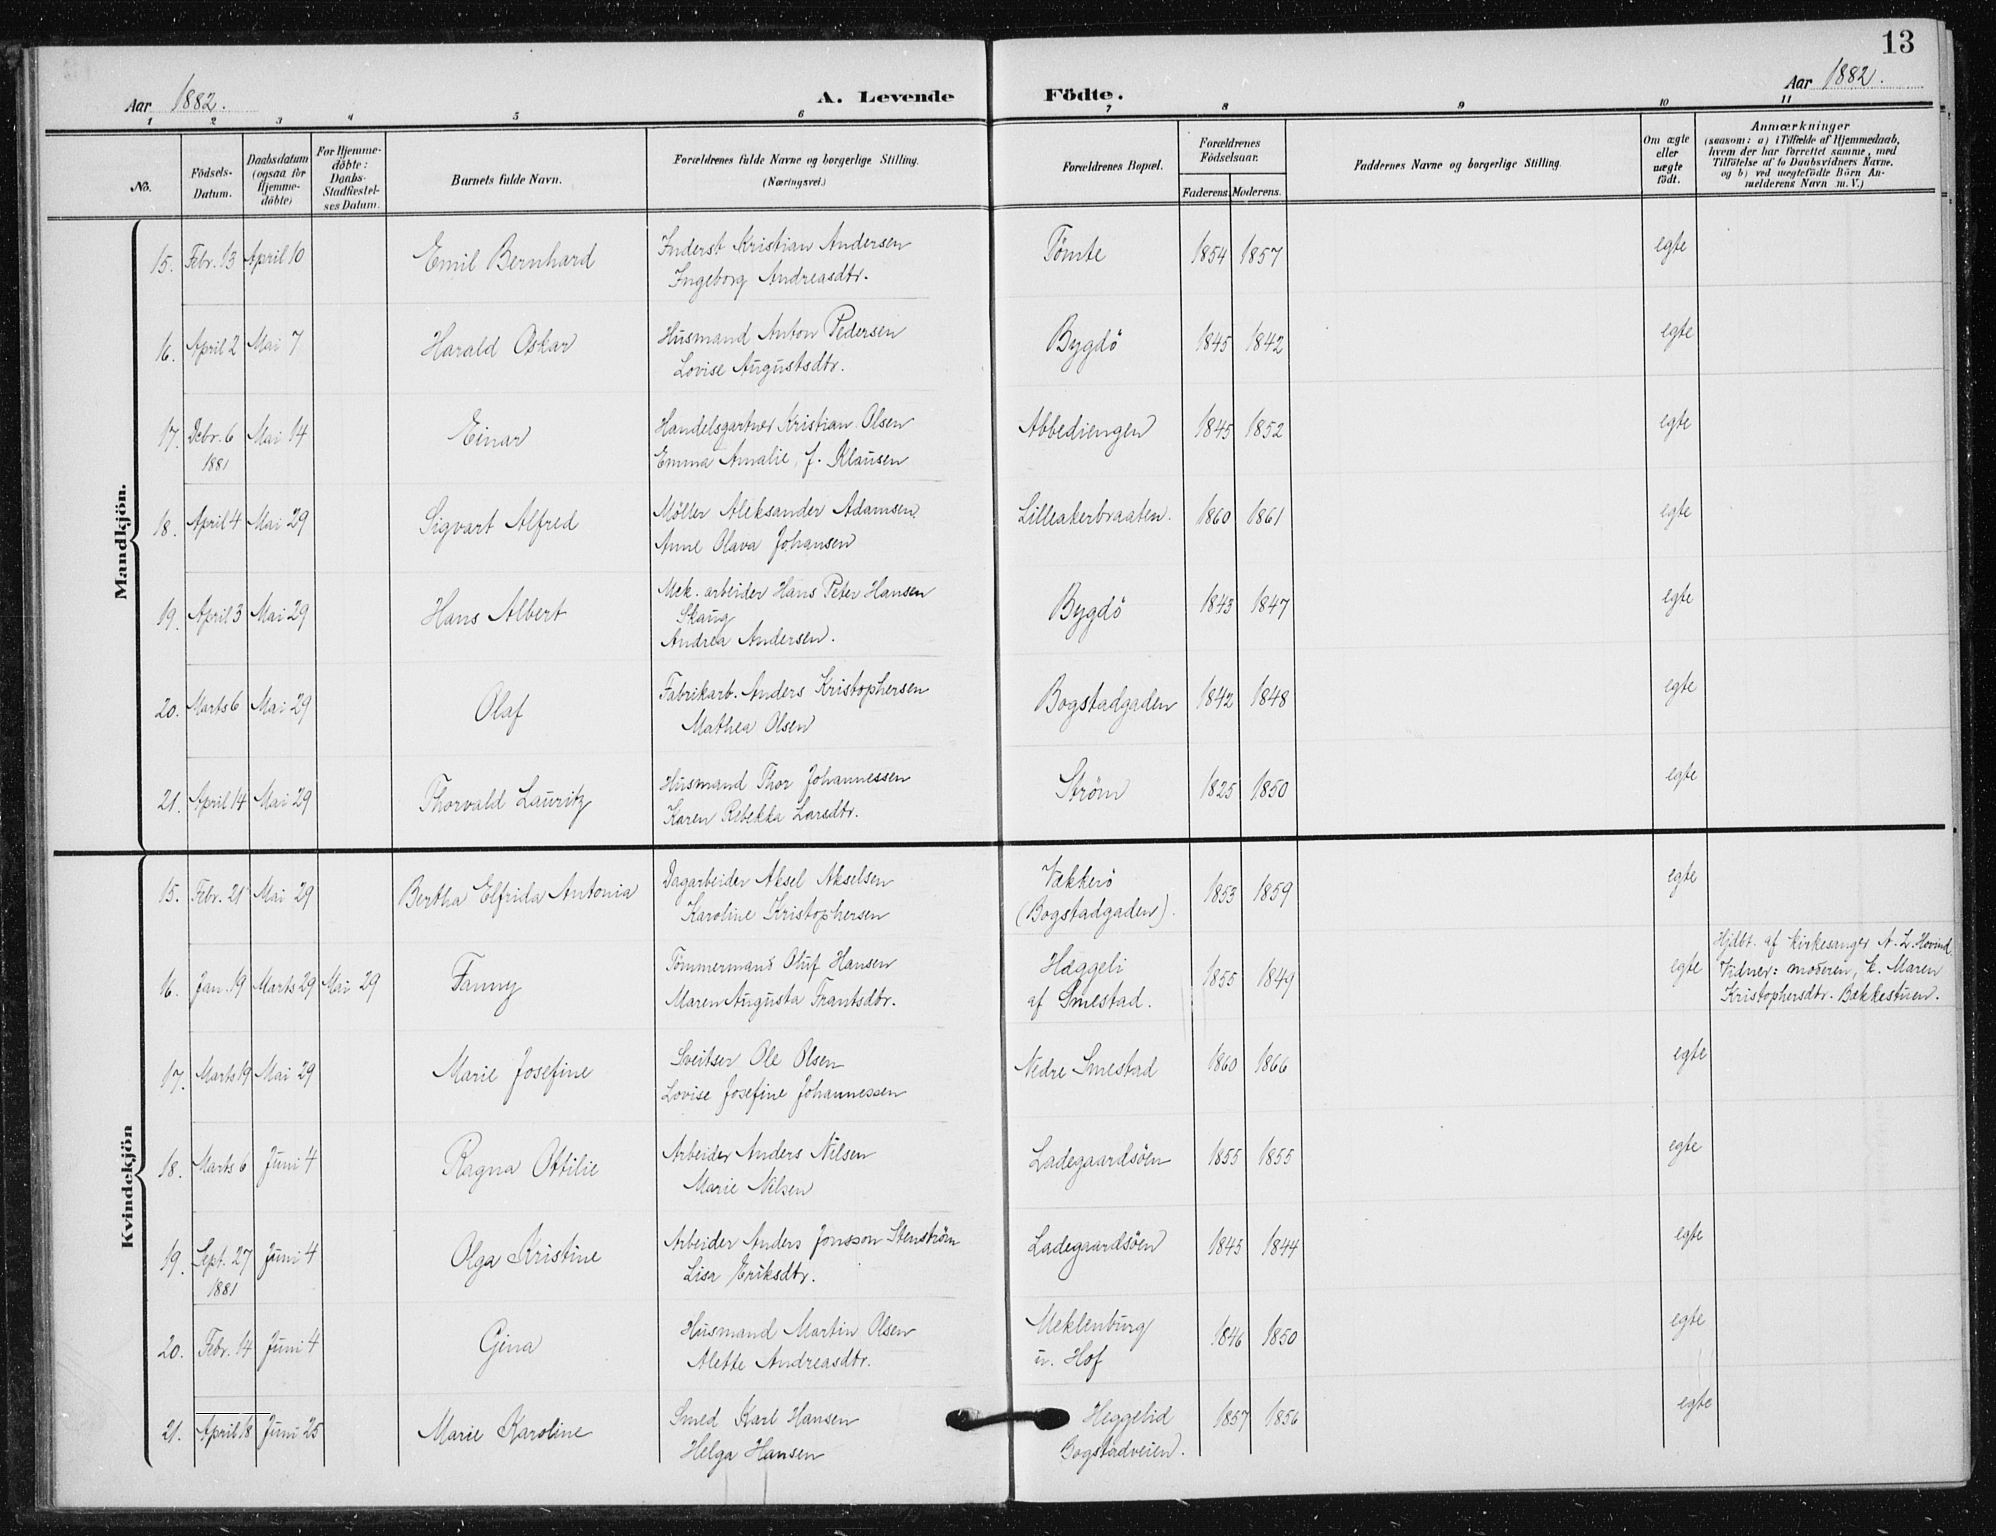 13
Aar 1882. A. Levende Födte. Aar 1882.
1 2 3 4 5 6 7 8 9 10 11
No. Födsels-Datum. Daabsdatum (ogsaa for Hjemme-döbte) For Hjemme-döbte: Daabs-Stadfæstel-ses Datum. Barnets fulde Navn. Forældrenes fulde Navne og borgerlige Stilling. (Næringsvei.) Forældrenes Bopæl. Forældrenes Födselsaar. Faderens. Moderens. Faddernes Navne og borgerlige Stilling. Om ægte eller uægte födt. Anmærkninger
(saasom: a) i Tilfælde af Hjemmedaab, hvem der har forrettet samme, med Tilföielse af to Daabsvidners Navne, og b) ved uægtefödte Börn Anmelderens Navn m. V.)
Mandkjön.
15. Febr. 13 April 10 Emil Bernhard Inderst Kristian Andersen Tömte 1854 1857 egte
Ingeborg Andreasdtr.
16. April 2 Mai 7 Harald Oskar Husmand Anton Pedersen Bygdö 1845 1842 egte
Lovise Augustsdtr.
17. Debr. 6 Mai 14 Einar Handelsgartner Kristian Olsen Abbediengen 1845 1852 egte
1881 Emma Amalie, f. Klausen
18. April 4 Mai 29 Sigvart Alfred Möller Aleksander Adamsen Lilleakerbraaten. 1860 1861 egte
Anne Olava Johansen
19. April 3 Mai 29 Hans Albert Mek. arbeider Hans Peter Hansen Bygdö 1843 1847 egte
Skaug
Andrea Andersen.
20. Marts 6 Mai 29 Olaf Fabrikarb. Anders Kristophersen Bogstadgaden 1842 1848 egte
Mathea Olsen
21. April 14 Mai 29 Thorvald Lauritz Husmand Thor Johannessen Ström 1825 1850 egte
Karen Rebekka Larsdtr.
Kvindekjön
15. Febr. 21 Mai 29 Bertha Elfrida Antonia Dagarbeider Aksel Akselsen Vækkerö 1853 1859 egte
Karoline Kristophersen (Bogstadgaden).
16. Jan. 19 Marts 29 Mai 29 Fanny Tömmermand Oluf Hansen Hæggeli 1855 1849 egte Hjdbt. af kirkesanger A. L. Hovind.
Maren Augusta Frantsdtr. af Smestad. Vidner: moderen, k. Maren
Kristophersdtr. Bækkestuen.
17. Marts 19 Mai 29 Marie Josefine Sveitser Ole Olsen Nedre Smestad 1860 1866 egte
Lovise Josefine Johannessen
18. Marts 6 Juni 4 Ragna Ottilie Arbeider Anders Nilsen Ladegaardsöen 1855 1855 egte
Marie Nilsen
19. Sept. 27 Juni 4 Olga Kristine Arbeider Anders Jonsson Stenström Ladegaardsöen 1845 1844 egte
1881 Lisa Eriksdtr.
20. Febr. 14 Juni 4 Gina Husmand Martin Olsen Meklenburg 1846 1850 egte
Alette Andreasdtr. u. Hof
21. April 18 Juni 25 Marie Karoline Smed Karl Hansen Heggelid 1857 1856 egte
Helga Hansen Bogstadveien.